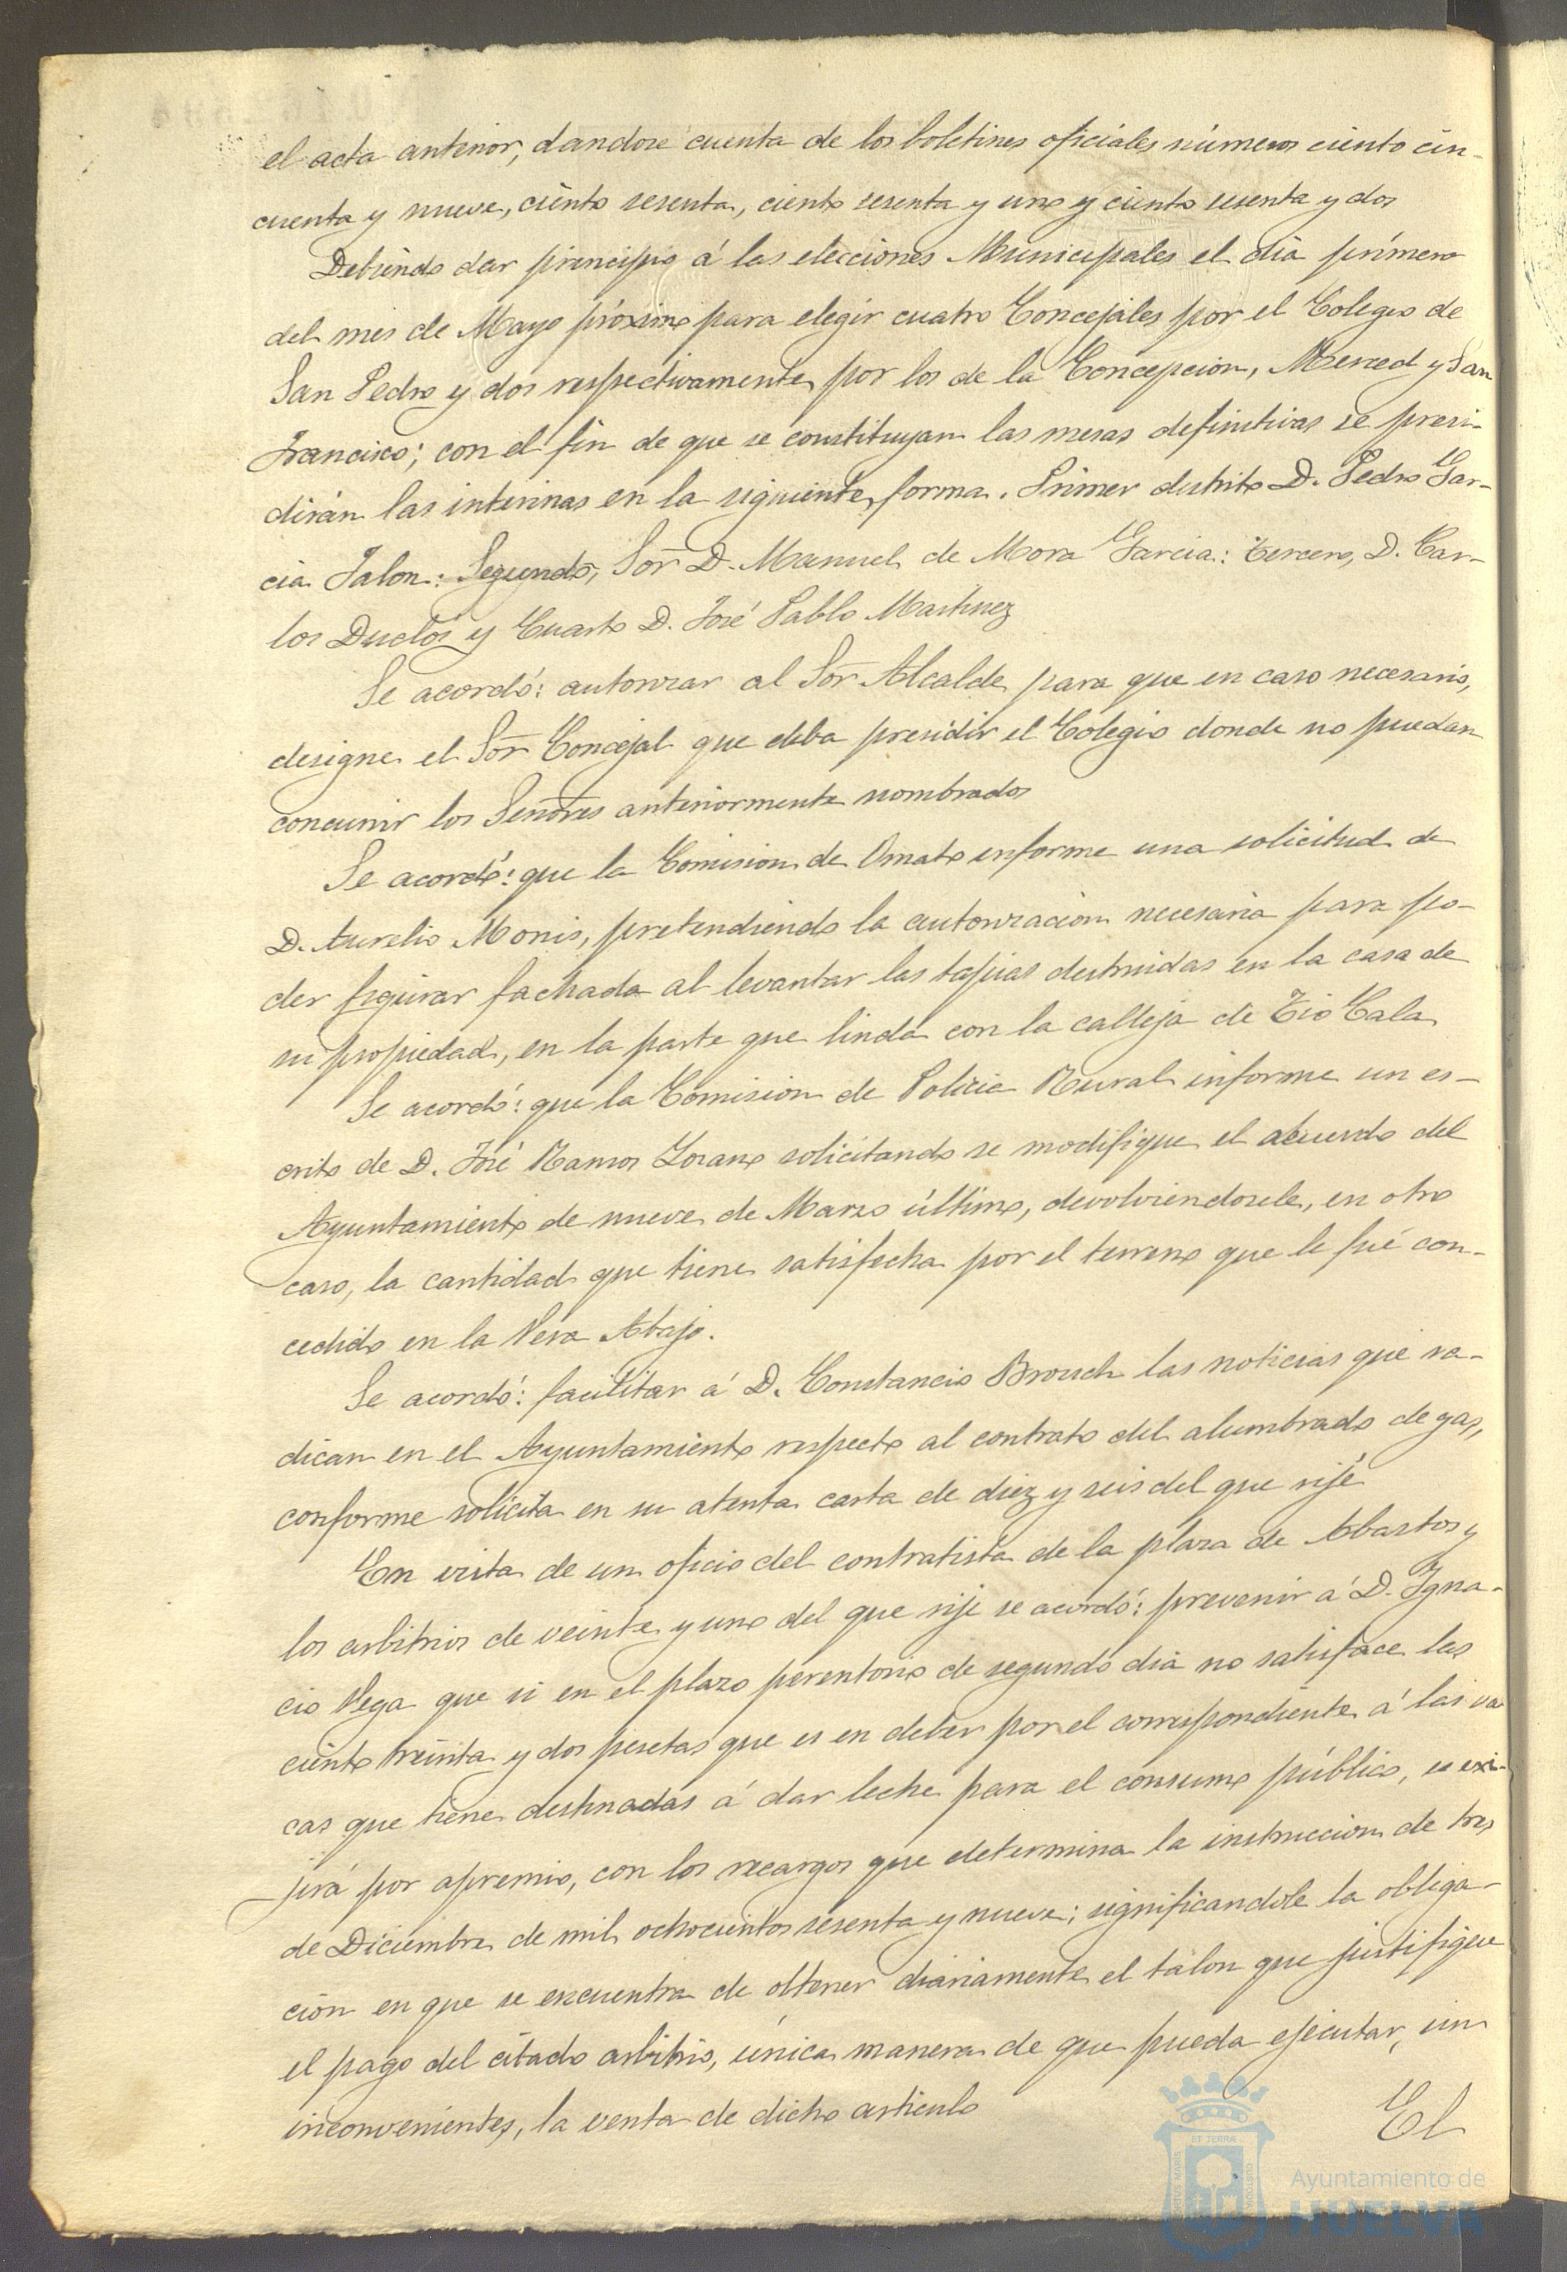 el acta anterior, dandose cuenta de los boletines oficiales números ciento cin-
cuenta y nueve, ciento sesenta, ciento sesenta y uno y ciento sesenta y dos
Debiendo dar principio á las elecciones Municipales el dia primero
del mes de Mayo próximo para elegir cuatro Concejales por el Colegio de
San Pedro y dos respectivamente por los de la Concepcion, Merced y San
Francisco; con el fin de que se constituyan las mesas definitivas se presi-
dirán las interinas en la siguiente forma. Primer distrito D. Pedro Gar-
cia Jalon: Segundo, Sor D. Manuel de Mora Garcia: tercero, D. Car-
los Duclós y Cuarto D. José Pablo Martinez
Se acordó: autorizar al Sor Alcalde para que en caso necesario,
designe el Sor Concejal que deba presidir el Colegio donde no puedan
concurrir los Señores anteriormente nombrados
Se acordó: que la Comision de Ornato informe una solicitud de
D. Aurelio Monis, pretendiendo la autorizacion necesaria para po-
der figurar fachada al levantar las tapias destruidas en la casa de
su propiedad, en la parte que linda con la calleja de Tio Cala
Se acordó: que la Comision de Policia Rural informe un es-
crito de D. José Ramos Lozano solicitando se modifique el acuerdo del
Ayuntamiento de nueve de Marzo último, devolviendosele, en otro
caso, la cantidad que tiene satisfecha por el terreno que le fué con-
cedido en la Vera Abajo.
Se acordó: facilitar á D. Constancio Brouch las noticias que ra-
dican en el Ayuntamiento respecto al contrato del alumbrado de gas,
conforme solicita en su atenta carta de diez y seis del que rije
En vista de un oficio del contratista de la plaza de Abastos y
los arbitrios de veinte y uno del que rije se acordó: prevenir á D. Igna-
cio Vega que si en el plazo perentorio de segundo dia no satisface las
ciento treinta y dos pesetas que es en deber por el correspondiente á las va
cas que tiene destinadas á dar leche para el consumo público, se exi-
jirá por apremio, con los recargos que determina la instruccion de tres
de Diciembre de mil ochocientos sesenta y nueve; significandole la obliga-
ción en que se encuentra de obtener diariamente el talon que justifique
el pago del citado arbitrio, única manera de que pueda ejecutar, sin
inconvenientes, la venta de dicho articulo
El
Ayuntamiento de
HUELVA